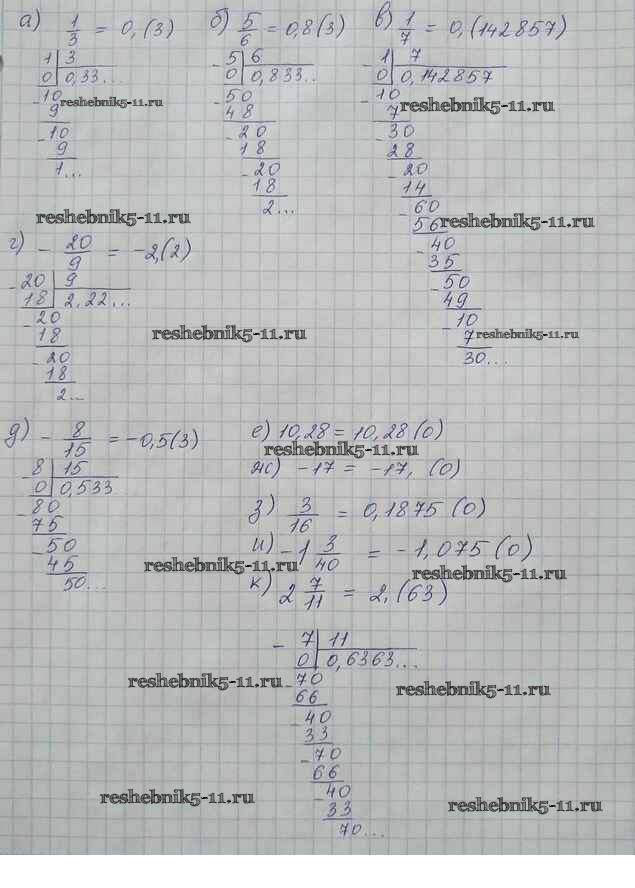 а) 1/3 = 0,(3)
1 | 3
0 | 0,33...
-10
9
-10
9
1...
б) 5/6 = 0,8(3)
-5 | 6
0 | 0,833...
-50
48
-20
18
-20
18
2...
в) 1/7 = 0,(142857)
-1 | 7
0 | 0,142857
-10
7
-30
28
-20
14
-60
56
-40
35
-50
49
-10
7
30...
reshebnik5-11.ru
reshebnik5-11.ru
reshebnik5-11.ru
reshebnik5-11.ru
г) - 20/9 = -2,(2)
-20 | 9
18 | 2,22...
-20
18
-20
18
2...
reshebnik5-11.ru
reshebnik5-11.ru
д) - 8/15 = -0,5(3)
-8 | 15
0 | 0,533
-80
75
-50
45
50...
е) 10,28 = 10,28(0)
reshebnik5-11.ru
ж) -17 = -17,(0)
з) 3/16 = 0,1875(0)
и) -1 3/40 = -1,075(0)
reshebnik5-11.ru
reshebnik5-11.ru
к) 2 7/11 = 2,(63)
-7 | 11
0 | 0,6363...
-70
66
-40
33
-70
66
-40
33
70...
reshebnik5-11.ru
reshebnik5-11.ru
reshebnik5-11.ru
reshebnik5-11.ru